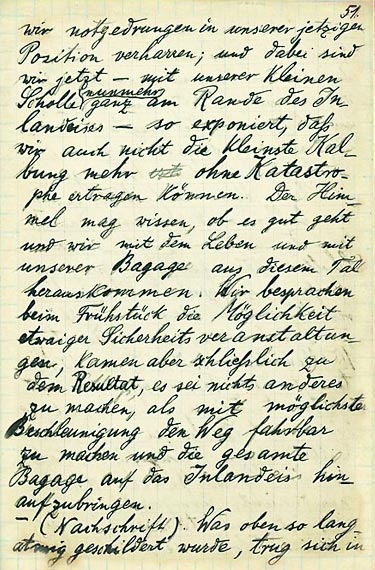 51.
wir notgedrungen in unserer jetzigen
Position verharren; und dabei sind
wir jetzt – mit unserer kleinen
Scholle (nunmehr) ganz am Rande des In-
landeises – so exponiert, daß
wir auch nicht die kleinste Kal-
bung mehr ohne Katastro-
phe ertragen können. Der Him-
mel mag wissen, ob es gut geht
und wir mit dem Leben und mit
unserer Bagage aus diesem Tal
herauskommen. Wir besprachen
beim Frühstück die Möglichkeit
etwaiger Sicherheitsveranstaltun-
gen, kamen aber schließlich zu
dem Resultat, es sei nichts anderes
zu machen, als mit möglichster
Beschleunigung den Weg fahrbar
zu machen und die gesamte
Bagage auf das Inlandeis hin-
aufzubringen.
– (Nachschrift). Was oben so lang-
atmig geschildert wurde, trug sich in